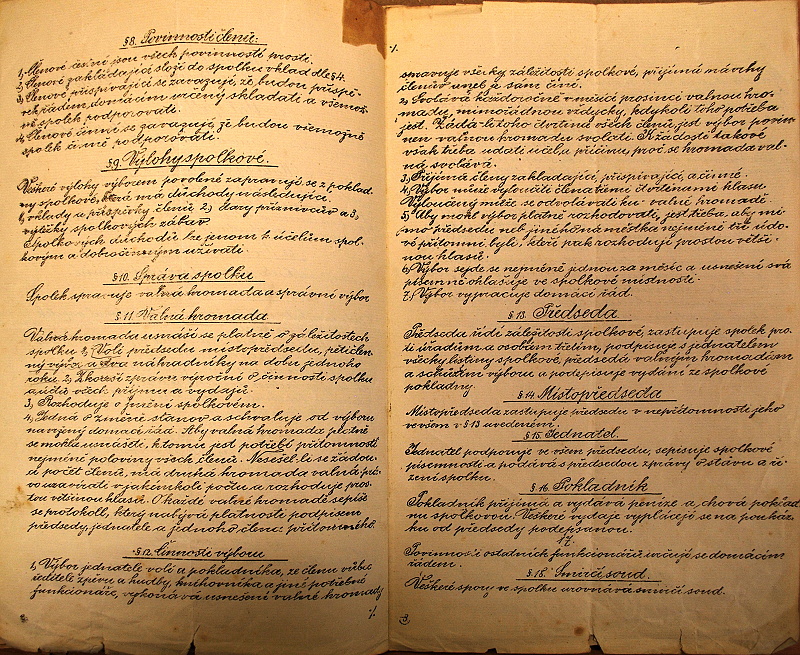 § 8. Povinnosti členů:
1, Členové čestní jsou všech povinností prosti.
2, Členové zakládající složí do spolku vklad dle § 4.
3, Členové přispívající se zavazují, že budou
řádem domácím určený skládati a všemož-
ně spolek podporovati.
4, Členové činní se zavazují, že budou všemožně
spolek činně podporovati.
§ 9. Výlohy spolkové.
Veškeré výlohy výborem povolené zapravují se z poklad-
ny spolkové, která má důchody následující:
1, vklady a příspěvky členů 2) dary příznivců a 3,
výtěžky spolkových zábav.
Spolkových důchodů lze jenom k účelům spol-
kovým a dobročinným užívati.
§ 10. Správa spolku
Spolek spravuje valná hromada a správní výbor
§ 11. Valná hromada
Valná hromada usnáší se platně o záležitostech
spolku 1, Volí předsedu místopředsedu, pětičlen-
ný výbor a dva náhradníky na dobu jednoho
roku. 2, Zkouší zprávu výroční o činnosti spolku
a účtů všech příjmů a vydajů.
3, Rozhoduje o jmění spolkovém.
4, Jedná o změně stanov a schvaluje od výboru
navrženy domácí řád. Aby valná hromada platně
se mohla usnášeti, k tomu jest potřebí přítomnosti
nejméně poloviny všech členů. Nesejdel-li se žádou-
cí počet členů, má druhá hromada valná prá-
vo uzavírati v jakémkoli počtu a rozhoduje pros-
tou většinou hlasů. O každé valné hromadě sepíše
se protokoll, který nabývá platnosti podpisem
předsedy, jednatele a jednoho člena přítomného.
§ 12. Činnosti výboru
1, Výbor jednatele volí a pokladníka, ze členů vůbec
ředitele zpěvu a hudby, knihovníka a jiné potřebné
funkcionáře, vykonává usnesení valné hromady
./.
./.
spravuje všecky záležitosti spolkové, přijímá návrhy
členův aneb je sám činí.
2, Svolává každoročně v měsíci prosinci valnou hro-
madu, mimořádnou vždycky, kdykoli toho potřeba
jest. Žádá-li toho čtvrtina všech členů, jest výbor povi-
nen valnou hromadu svolati. K žádosti takové
však třeba udati účel a příčinu, proč se hromada val-
ná svolává.
3, Přijímá členy zakládající, přispívající, a činné.
4, Výbor může vyloučiti člena třemi čtvrtinami hlasů.
Vyloučený může se odvolávati ku valné hromadě.
5, Aby mohl výbor platně rozhodovati, jest třeba, aby mi-
mo předsedu neb jiného náměstka nejméně tři údo-
vé přítomni byli, kteří pak rozhodují prostou větši-
nou hlasů.
6, Výbor sejde se nejméně jednou za měsíc a usnesení svá
písemně ohlašuje ve spolkové místnosti.
7, Výbor vypracuje domácí řád.
§ 13. Předseda
Předseda řídí záležitosti spolkové, zastupuje spolek pro-
ti úřadům a osobám třetím, podpisuje s jednatelem
všechy listiny spolkové, předsedá valným hromadám
a schůzím výboru a podepisuje vydání ze spolkové
pokladny.
§ 14. Místopředseda
Místopředseda zastupuje předsedu v nepřítomnosti jeho
ve všem v § 13 uvedeném.
§ 15. Jednatel.
Jednatel podporuje ve všem předsedu, sepisuje spolkové
písemnosti a podává s předsedou zprávy o stavu a ří-
zení spolku.
§ 16. Pokladník
Pokladník přijímá a vydává peníze a chová poklad-
nu spolkovou. Veškeré výdaje vyplácejí se na poukáz-
ku od předsedy podepsanou.
17.
Povinnosti ostatních funkcionářů určují se domácím
řádem.
§ 18. Smírčí soud.
Veškeré spory ve spolku urovnává smírčí soud.